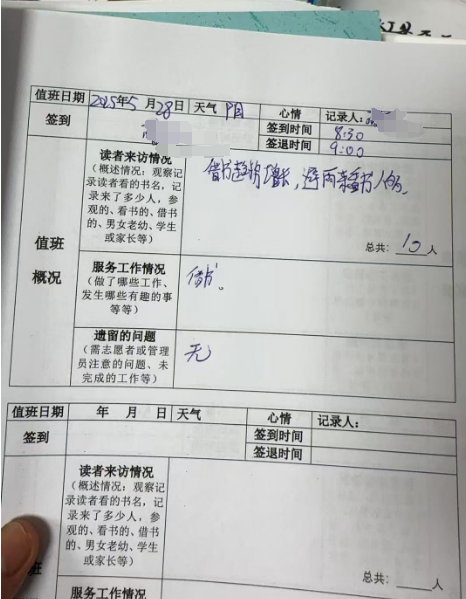 值班日期 2025年5月28日 天气 阴 心情 记录人：
签到 签到时间 8:30
签退时间 9:00
值班概况
读者来访情况
（概述情况：观察记
录读者看的书名，记
录来了多少人，参
观的、看书的、借书
的、男女老幼、学生
或家长等）
总共：10人
服务工作情况
（做了哪些工作、
发生哪些有趣的事
等等）
借书。
遗留的问题
（需志愿者或管理
员注意的问题、未
完成的工作等）
无
值班日期 年 月 日 天气 心情 记录人：
签到 签到时间
签退时间
读者来访情况
（概述情况：观察记
录读者看的书名，记
录来了多少人，参
观的、看书的、借书
的、男女老幼、学生
或家长等）
总共：人
班
服务工作情况